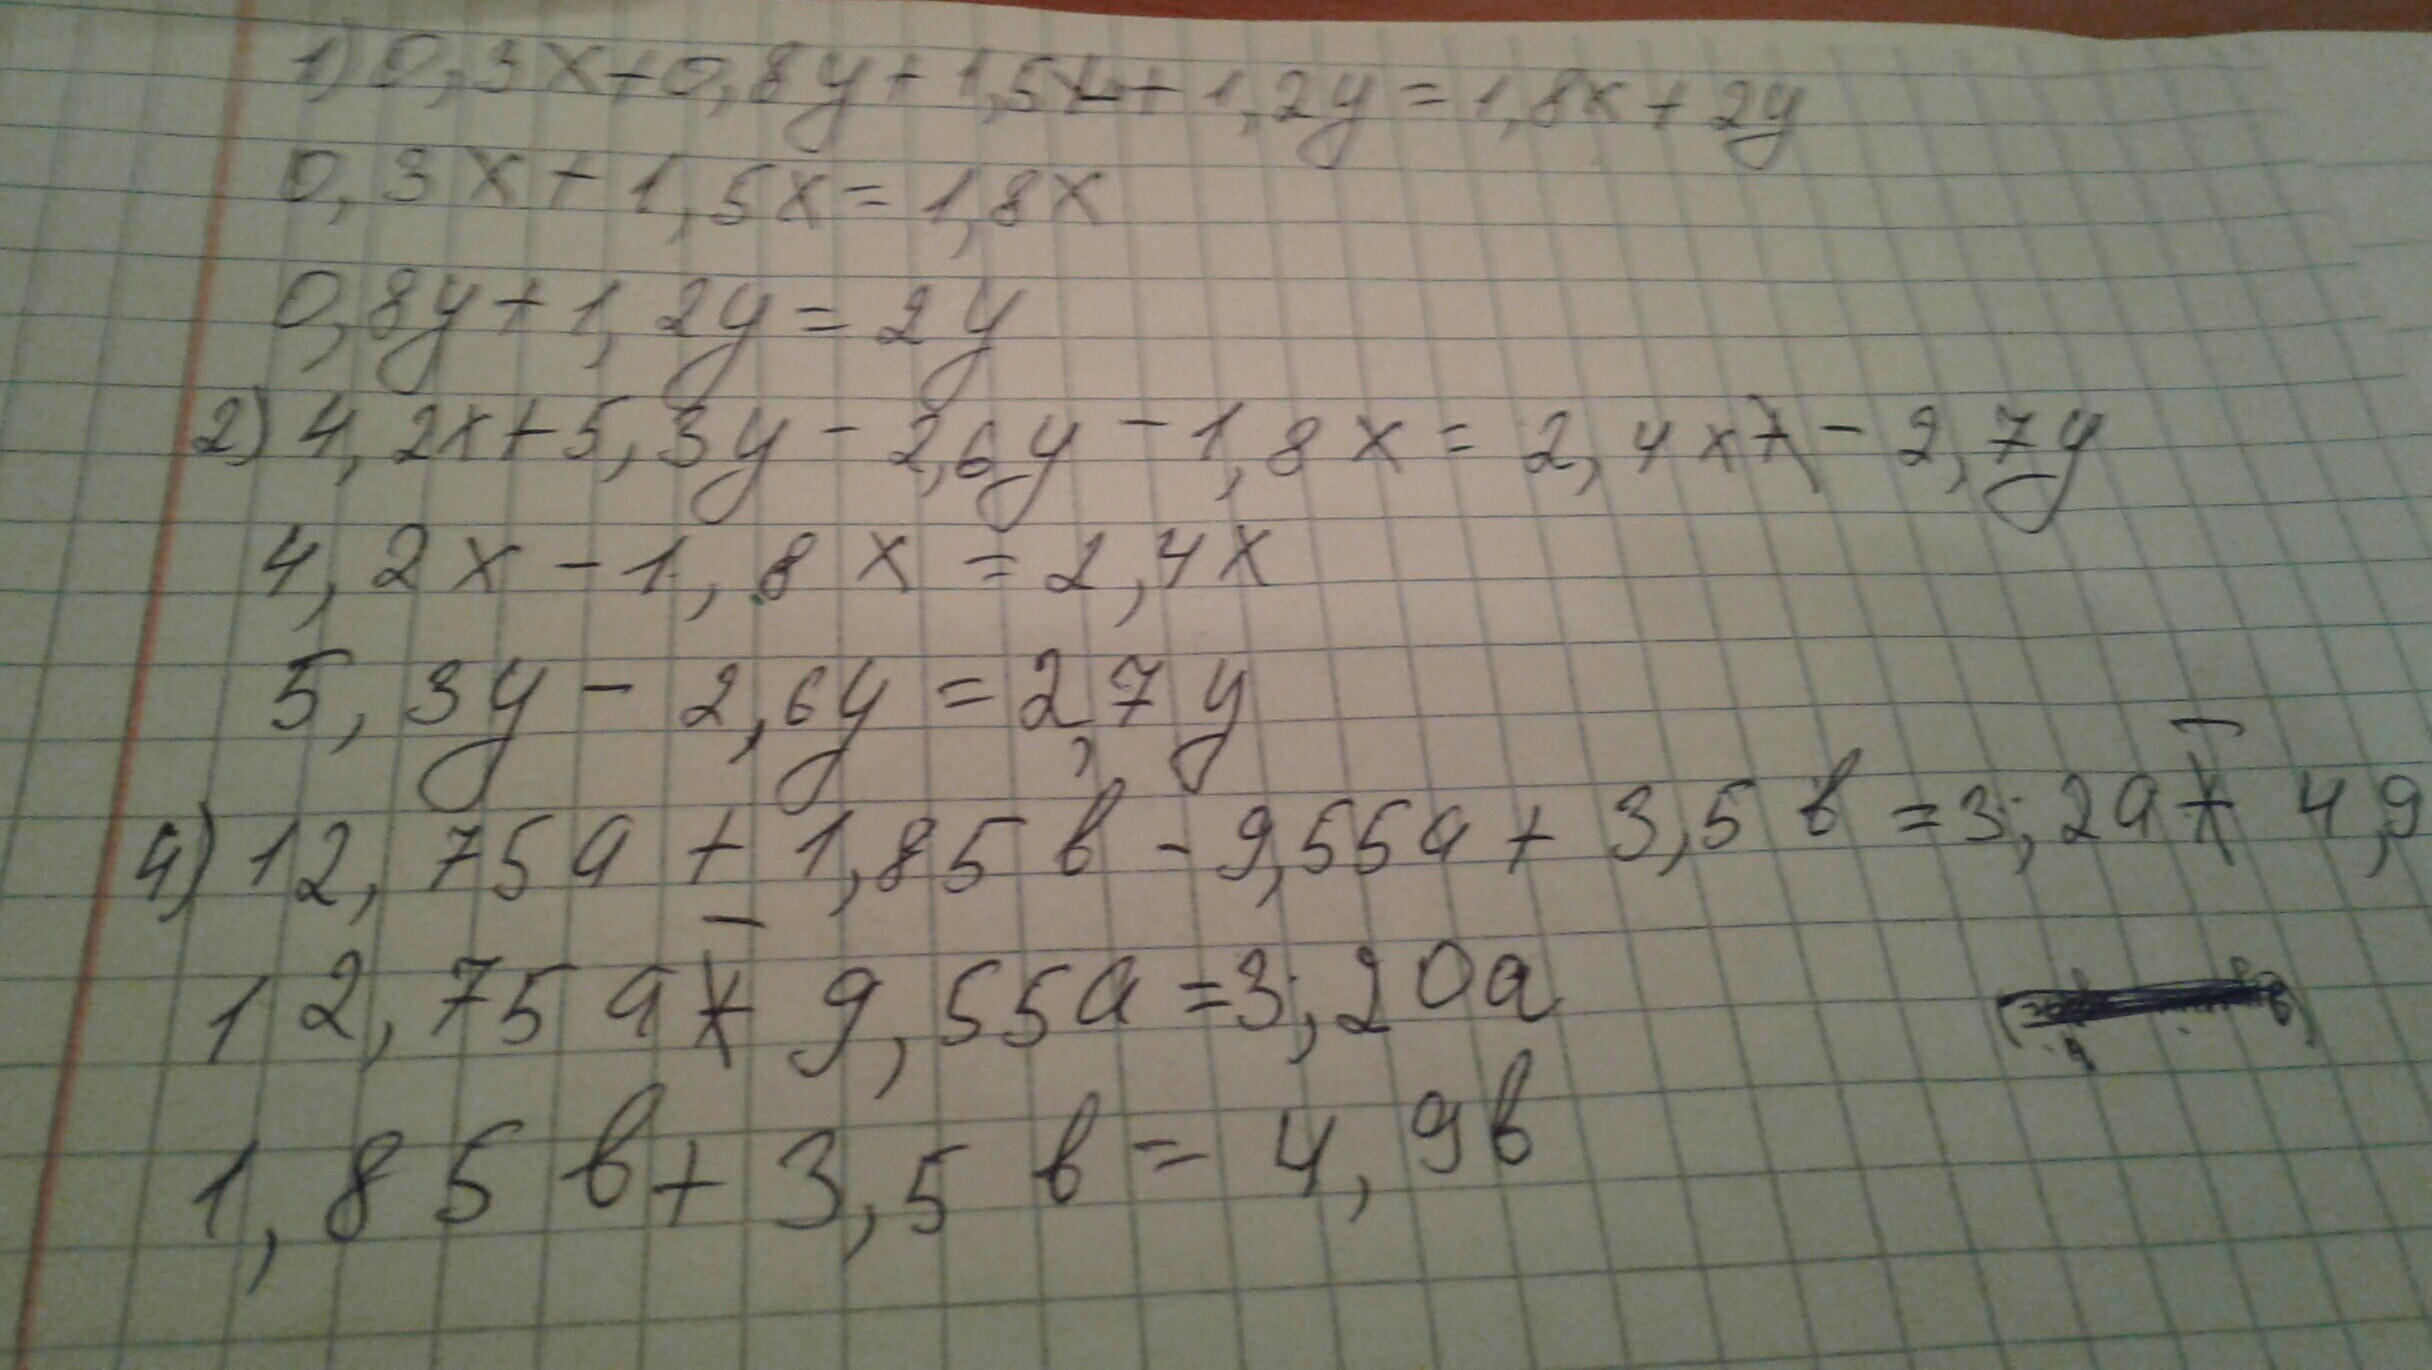 1) 0,3x+0,8y+1,5x+1,2y=1,8x+2y
0,3x+1,5x=1,8x
0,8y+1,2y=2y
2) 4,2x+5,3y-2,6y-1,8x=2,4x-2,7y
4,2x-1,8x=2,4x
5,3y-2,6y=2,7y
4) 12,75a+1,85в-9,55a+3,5в=3,2a-4,9
12,75a-9,55a=3,20a
1,85в+3,5в=4,9в